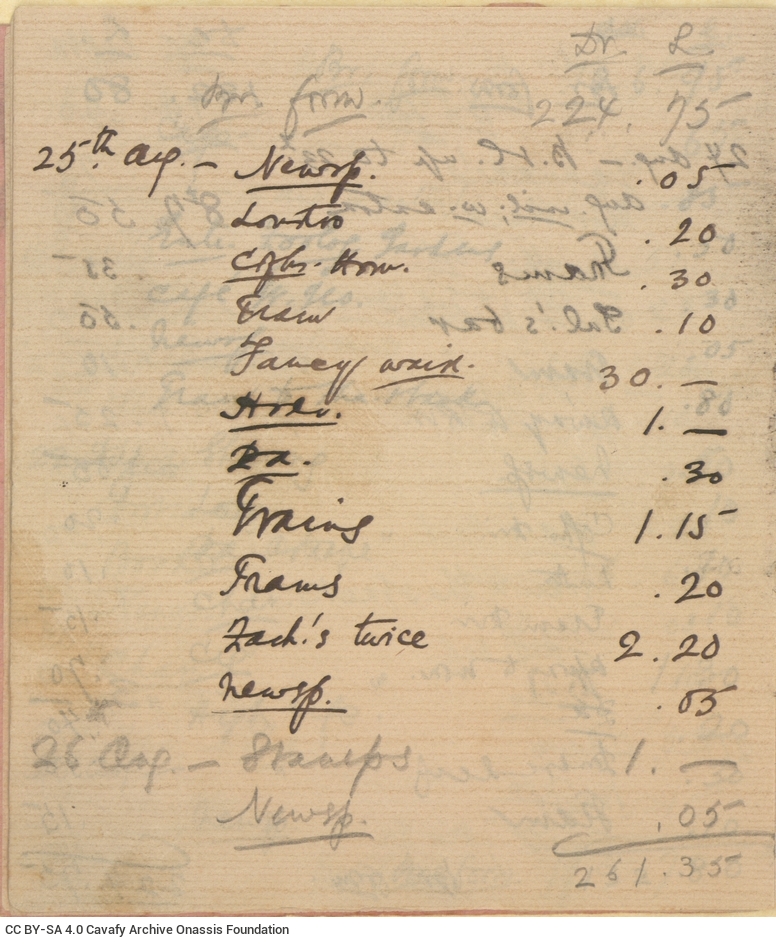 Dr. L
Br. forw. 224. 75
25th Aug. — Newsp. .05
Loustro .20
.30
Tram .10
Fancy waist. 30. —
1. —
.30
Trains 1.15
Trams .20
Zach's twice 2.20
Newsp. .05
26 Aug. — Stamps 1. —
Newsp. .05
261.35
CC BY-SA 4.0 Cavafy Archive Onassis Foundation